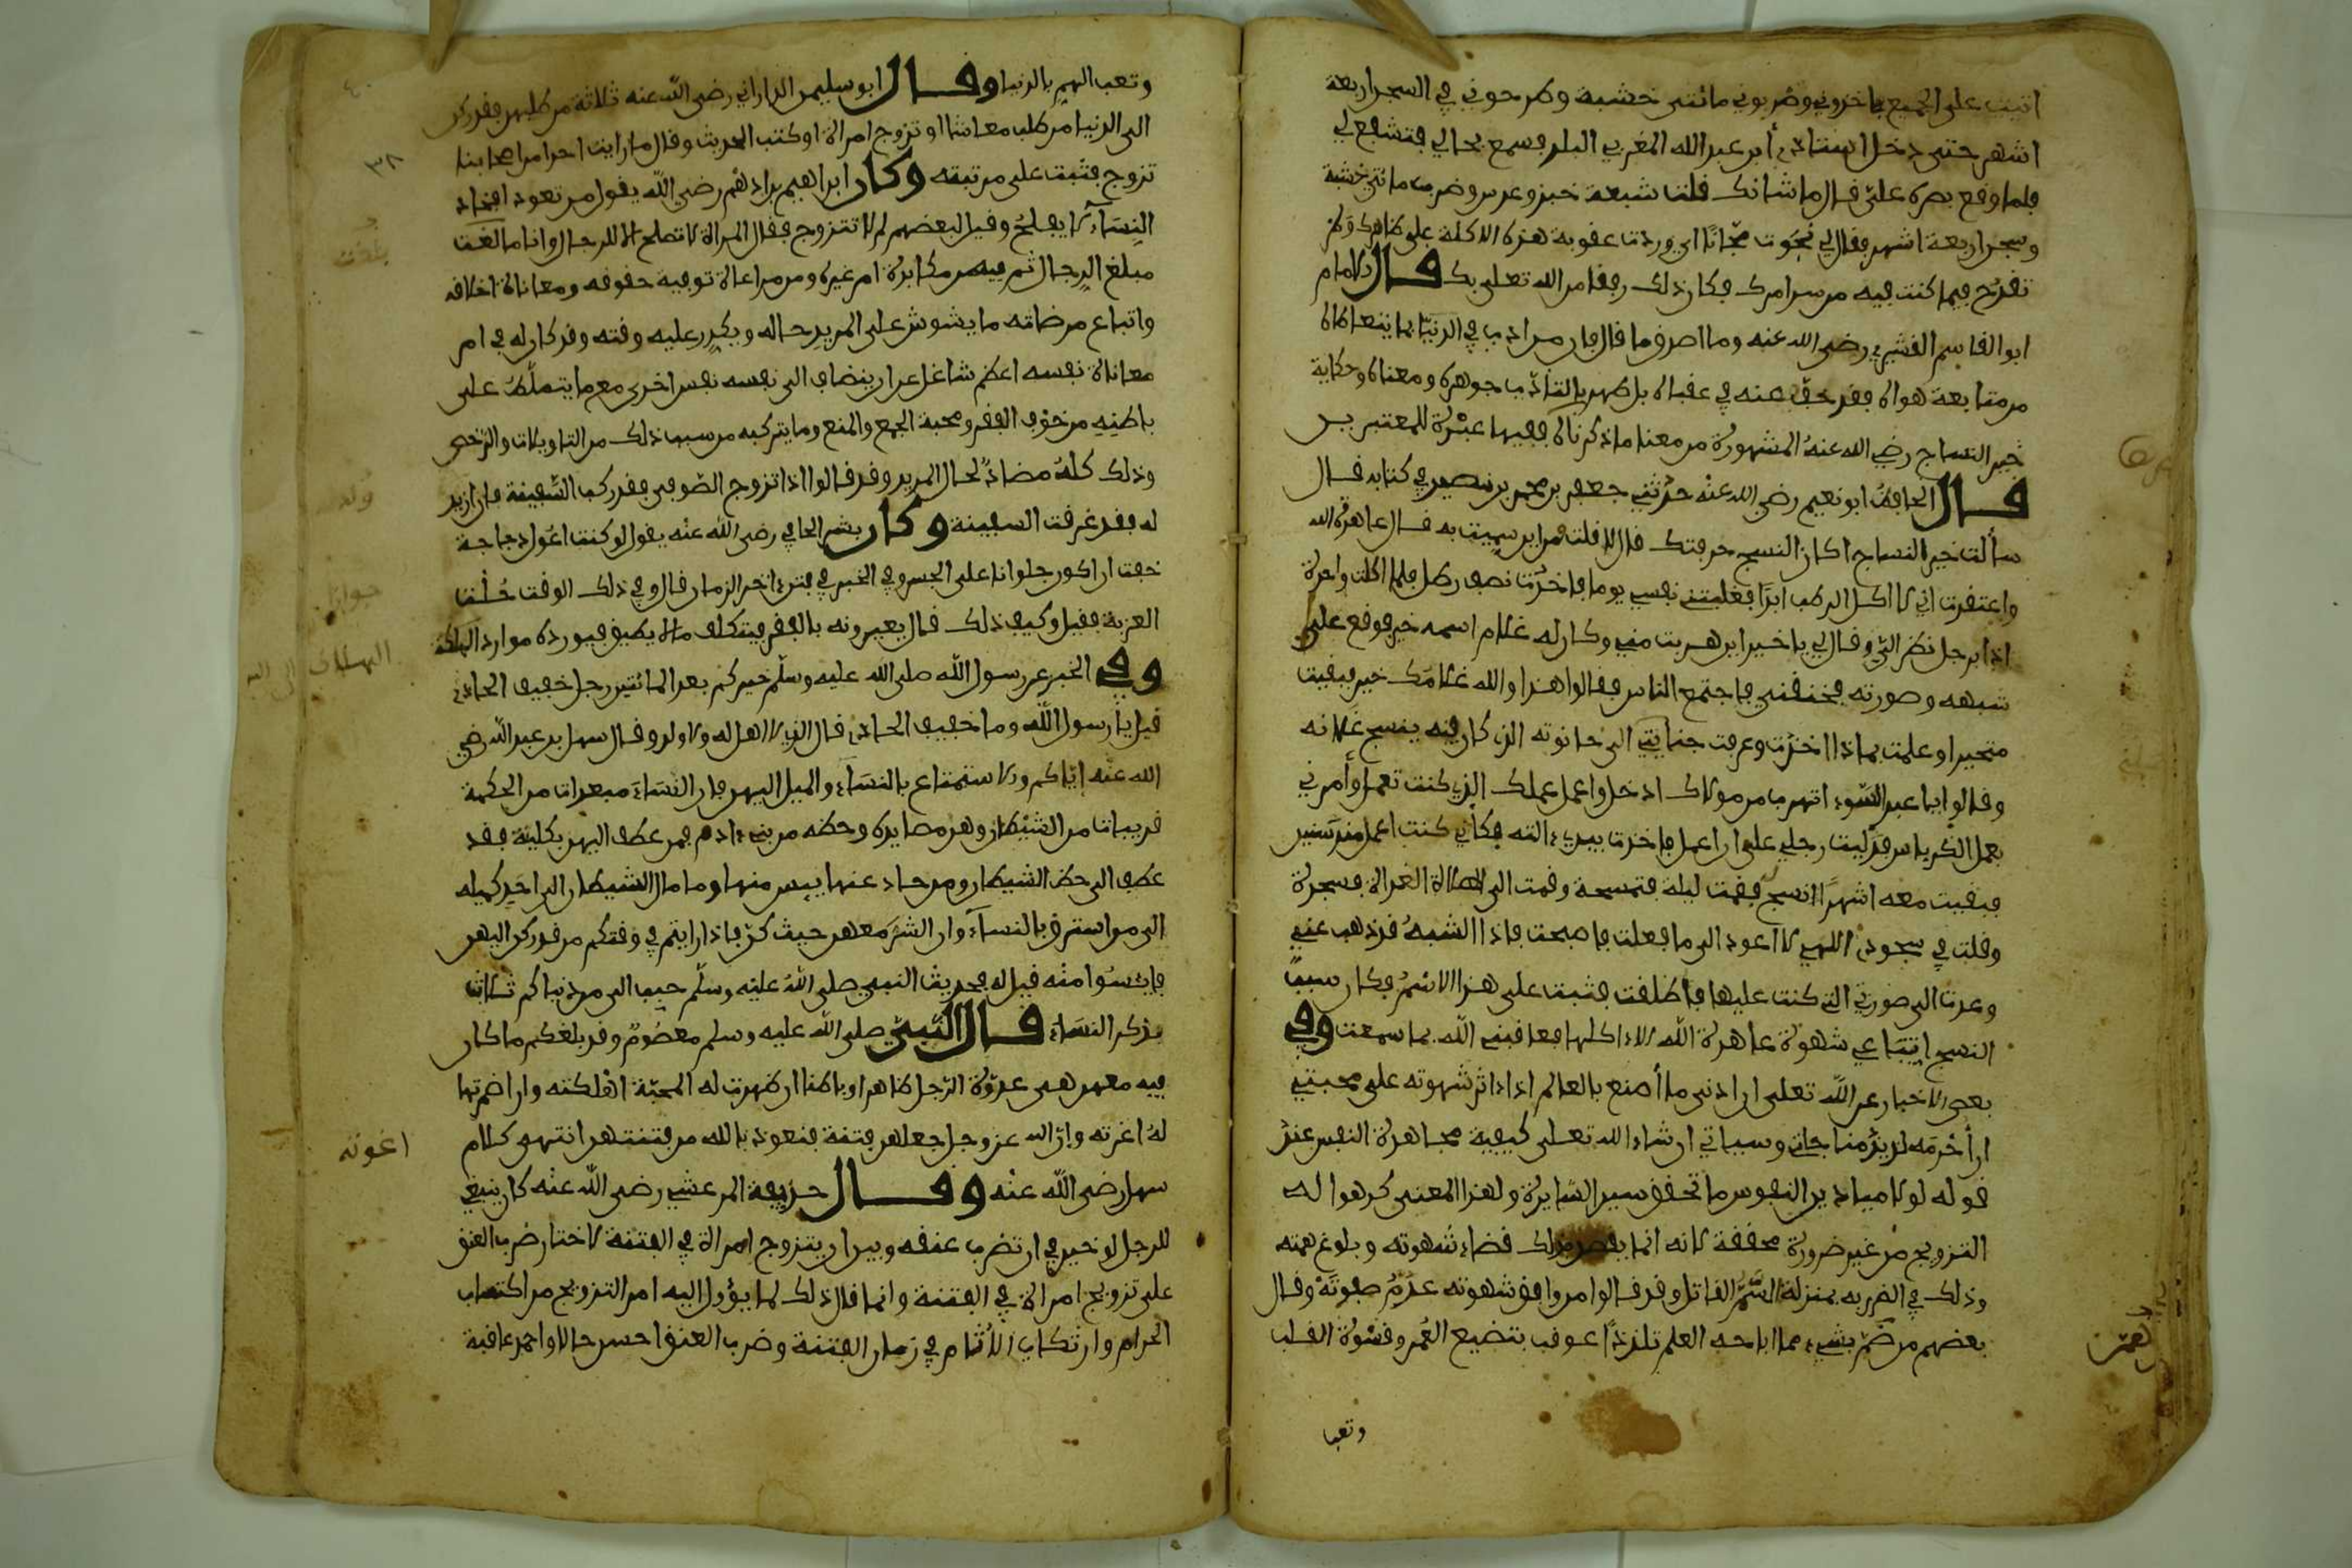 اتيت على الجميع فاخذوني وضربوني مائتي خشبة وطرحوني في السجن اربعة
اشهر حتى دخل استاذي أبو عبد الله المغربي البلد فسمع بحالي فتشفع لي
فلما وقع بصره عليّ قال ما شانك فلت شبعة خبز وعدس وضرب مائتي خشبة
وسجن اربعة اشهر فقال لي نجوت مجّانًا اي وردت عقوبة هذه الاكلة على ظاهرك ولم
تقدح فيما كنت فيه من سرامرك فكان ذلك رفقا من الله تعلى بك قال الامام
ابو القاسم القشيري رضي الله عنه وما اصدق ما قال فان من ادب في الدنيا بما يتعاطاه
من متابعة هواه فقد خفّف عنه في عقباه بل طهر بالتاذّب جوهره ومعناه وحكاية
خير النساج رضي الله عنهُ المشهورة من معنا ما ذكرناه ففيها عبْرة للمعتبرين
قال الحافظُ ابو نعيم رضي الله عنْه حدّثني جعفر بن محمد بن نصير في كتابه قال
سألت خير النساج اكان النسج حرفتك قال لا فلت فمن اين سميت به قال عاهدت الله
واعتقدت اني لا اكل الرطب ابدًا فغلبتني نفسي يوما فاخذت نصف رطل فلما اكلت واحدة
اذا برجل نظر اليّ وقال لي يا خير اين هربت مني وكان له غلام اسمه خير فوقع على
شبهه وصورته فخنقني فاجتمع الناس فقالوا هذا والله غلامَك خير فبقيت
متحيرا وعلمت بماذا اخذت وعرفت جنايتي الى حانوته الذي كان فيه ينسج غلمانه
وقالوا يا عبد السّوء اتهرب من مولاك ادخل واعمل عملك الذي كنت تعمل وأمرني
بعمل الكرباس فدَلّيت رجلي على ان اعمل فاخذت بيدي ءالته فكأني كنت اعمل منذ سنين
فبقيت معه اشهرًا انسج فقمت ليلة فتمسحت وقمت الى صلاة الغداة فسجدت
وقلت في سجودي اللهي لا اعود الى ما فعلت فاصبحت فاذا الشبهُ قد ذهب عني
وعدت الى صورتي التي كنت عليها فاطلقت فثبت على هذا الاسمُ فكان سبب
النسج اتباعي شهوة عاهدت الله الا اكلها فعاقبني الله بما سمعت وفي
بعض الاخبار عن الله تعلى ان ادنى ما أصنع بالعالم اذا اثر شهوته على محبتي
ان أحْرِمَه لذيذ مناجاتي وسياتي ان شاء الله تعلى كيفية مجاهدة النفس عند
قوله لولا ميادين النفوس ما تحقق سير السّايرة ولهذا المعنى كرهوا له
التزويج من غير ضرورة محققة لانه انما يقصد بذلك قضاء شهوته وبلوغ نهمته
وذلك في الضرر به بمنزلة السّمّ القاتل وقد قالوا من وافق شهوته عدم صفوتَهُ وقال
بعضهم من همّ بشيء مما اباحه العلم تلذذًا عوقب بتضييع العُمر وقسْوة القلب
وتعب
وتعب الهم بالدنيا وقال ابو سليمن الداراني رضي الله عنه ثلاثة من طلبهن فقد ركن
الى الدنيا من طلب معاشا او تزوج امراة او كتب الحديث وقال ما رايت احدا من اصحابنا
تزوج فثبت على مرتبته وكان ابراهيم بن ادهم رضي الله يقول من تعود افخاذ
النِسَآء لا يفلحُ وقيل لبعضهم لم لا تتزوج فقال المراة لا تصلح الا للرجال وانا ما بلغت
مبلغ الرجال ثم فيه من مكابدة امر غيره ومن مراعاة توفية حقوقه ومعاناة اخلاقه
واتباع مرضاته ما يشوش على المريد حاله ويكدر عليه وقته وقد كان له في امر
معاناة نفسه اعظم شاغل عن ان ينضاف الى نفسه نفس اخرى مع ما يتسلّط على
باطنِهِ من خوف الفقر ومحبة الجمع والمنع وما يتركبه من سبب ذلك من التاويلات والترخص
وذلك كلهُ مضادّ لحال المريد وقد قالوا اذا تزوج الصّوفي فقد ركب السّفينة فان ازيد
له فقد غرقت السفينة وكان بشر الحافي رضي الله عنْه يقول لو كنت اعُول دجاجة
خفت ان اكون جلوازا على الجسر وفي الخبر في فتن ءاخر الزمان قال وفي ذلك الوقت حُلّت
العزبة فقيل وكيف ذلك قال يعيرونه بالفقر فيتكلف ما لا يطيق فيورده موارد الهلكة
وفي الخبر عن رسول الله صلى الله عليه وسلّم خيركم بعد المائتين رجل خفيف الحاذ
قيل يا رسول الله وما خفيف الحاذ قال الذي لا اهل له ولا ولد وقال سهل بن عبد الله رضي
الله عنه اياكم والاستمتاع بالنسَآء والميل اليهن فان النسَاءَ مبعدات من الحكمة
قريبات من الشيْطان وهن مصايده وحظه من بني ءادم فمن عطف اليهن بكليته فقد
عطف الى حظ الشيطان ومن حاد عنها ييس منها وما مال الشيطان الى احَدٍ كميله
الى من استرق بالنسآء وان الشرّ معهن حيث كنّ فاذا رايتم في وقتكم من قد ركن اليهن
فايْئسُوا منْه قيل له فحديث النبي صلى اللهُ عليْه وسلّم حبب الي من دنياكم ثلاث
فذكر النسَاء قال النّبيّ صلى الله عليه وسلم معصُومٌ وقد بلغكم ما كان
فيه معهن هي عدوّة الرّجل ظاهرا وباطنا ان ظهرت له المحبّة اهلكته وان اضمرتها
لهُ اغرته وانّ الله عز وجل جعلهن فتنة فنعوذ بالله من فتنتهن انتهى كلام
سهل رضي الله عنْه وقال حذيفة المرعشي رضي الله عنْه كان ينبغي
للرجل لو خير في ان تضرب عنقه وبين ان يتزوج امراة في الفتنة لاختار ضرب العنق
على تزويج امراة في الفتنة وانما قال ذلك لما يؤول اليه امر التزويج من اكتساب
الحرام وارتكاب الأثام في زمان الفتنة وضرب العنق احسن حالا واحمد عاقبة
٣٨
بلغت
اغوته